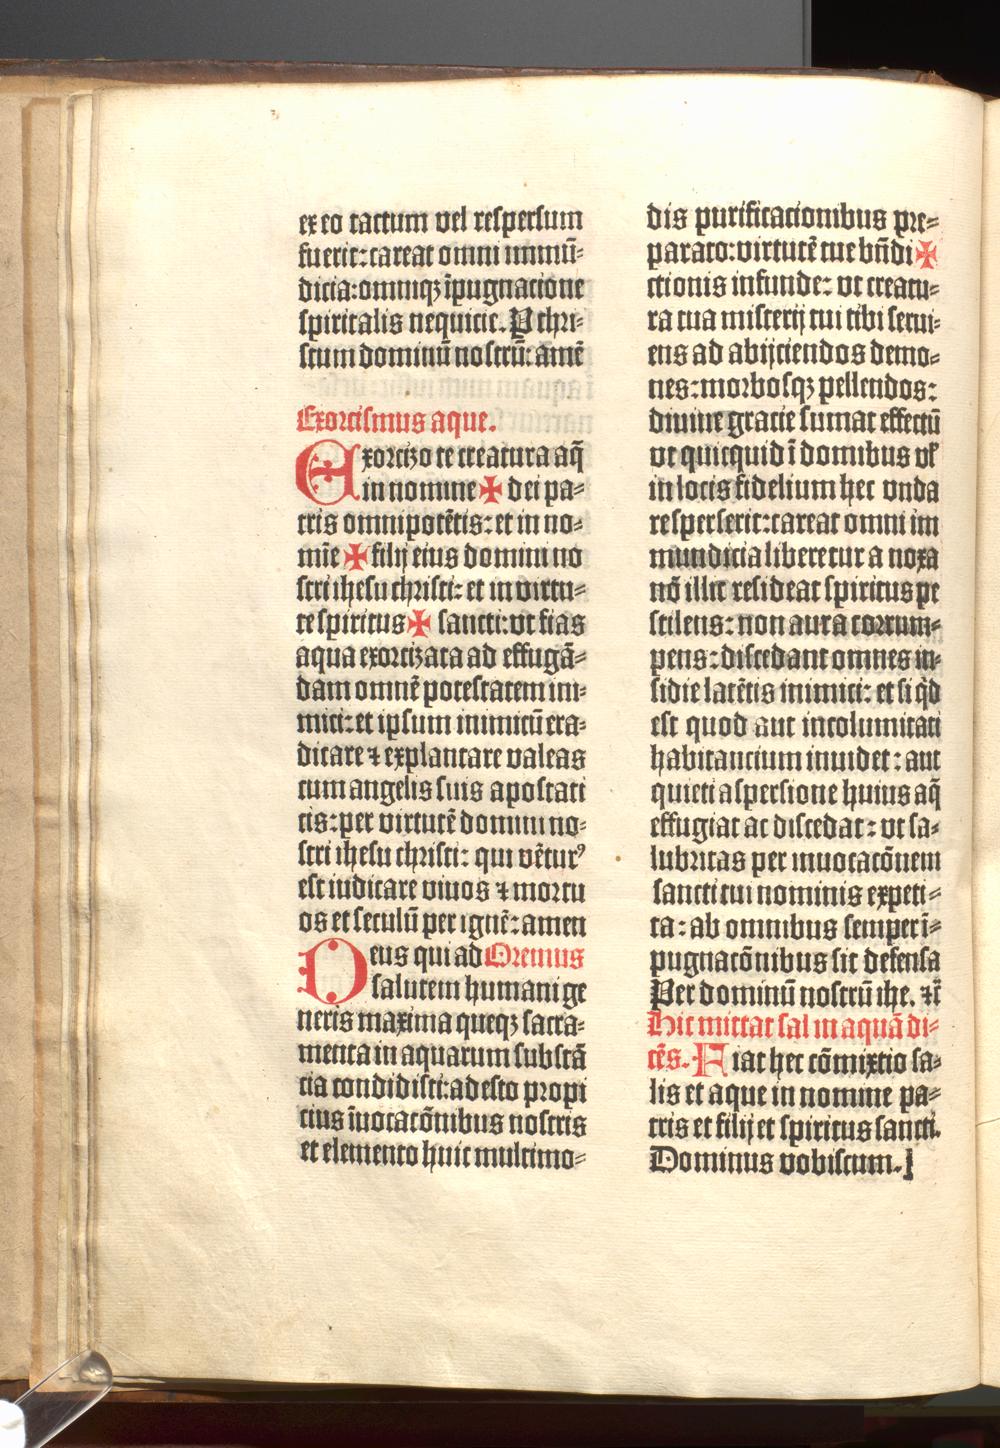 ex eo tactum vel respersum
fuerit: careat omni immū⸗
dicia: omniqꝫ īpugnacione
spiritalis nequicie. P chri⸗
stum dominū nostrū: amē
Exorcismus aque.
Exorcizo te creatura aq̄
in nomine ✠ dei pa⸗
tris omnipotētis: et in no⸗
mīe ✠ filij eius domini no
stri ihesu christi: et in virtu⸗
te spiritus ✠ sancti: vt fias
aqua exorcizata ad effugā⸗
dam omnē potestatem ini⸗
mici: et ipsum inimicū era⸗
dicare ⁊ explantare valeas
cum angelis suis apostati
cis: per virtutē domini no⸗
stri ihesu christi: qui vēturꝰ
est iudicare viuos ⁊ mortu
os et seculū per ignē: amen
Deus qui ad Oremus
salutem humani ge
neris maxima queqꝫ sacra⸗
menta in aquarum substā
cia condidisti: adesto propi
cius īuocacōnibus nostris
et elemento huic multimo⸗
dis purificacionibus pre⸗
parato: virtutē tue bn̄di ✠
ctionis infunde: vt creatu⸗
ra tua misterij tui tibi serui⸗
ens ad abijciendos demo⸗
nes: morbosqꝫ pellendos:
diuine gracie sumat effectū
vt quicquid ī domibus vł
in locis fidelium hec vnda
resperserit: careat omni im
mundicia liberetur a noxa
nō illic resideat spiritus pe
stilens: non aura corrum⸗
pens: discedant omnes in⸗
sidie latētis inimici: et si qd̓
est quod aut incolumitati
habitancium inuidet: aut
quieti aspersione huius aq̄
effugiat ac discedat: vt sa⸗
lubritas per inuocacōnem
sancti tui nominis expeti⸗
ta: ab omnibus semper ī⸗
pugnacōnibus sit defensa
Per dominū nostrū ihe. ⁊c̄
Hic mittat sal in aquā di⸗
cēs. Fiat hec cōmixtio sa⸗
lis et aque in nomine pa⸗
tris et filij et spiritus sancti.
Dominus vobiscum.]